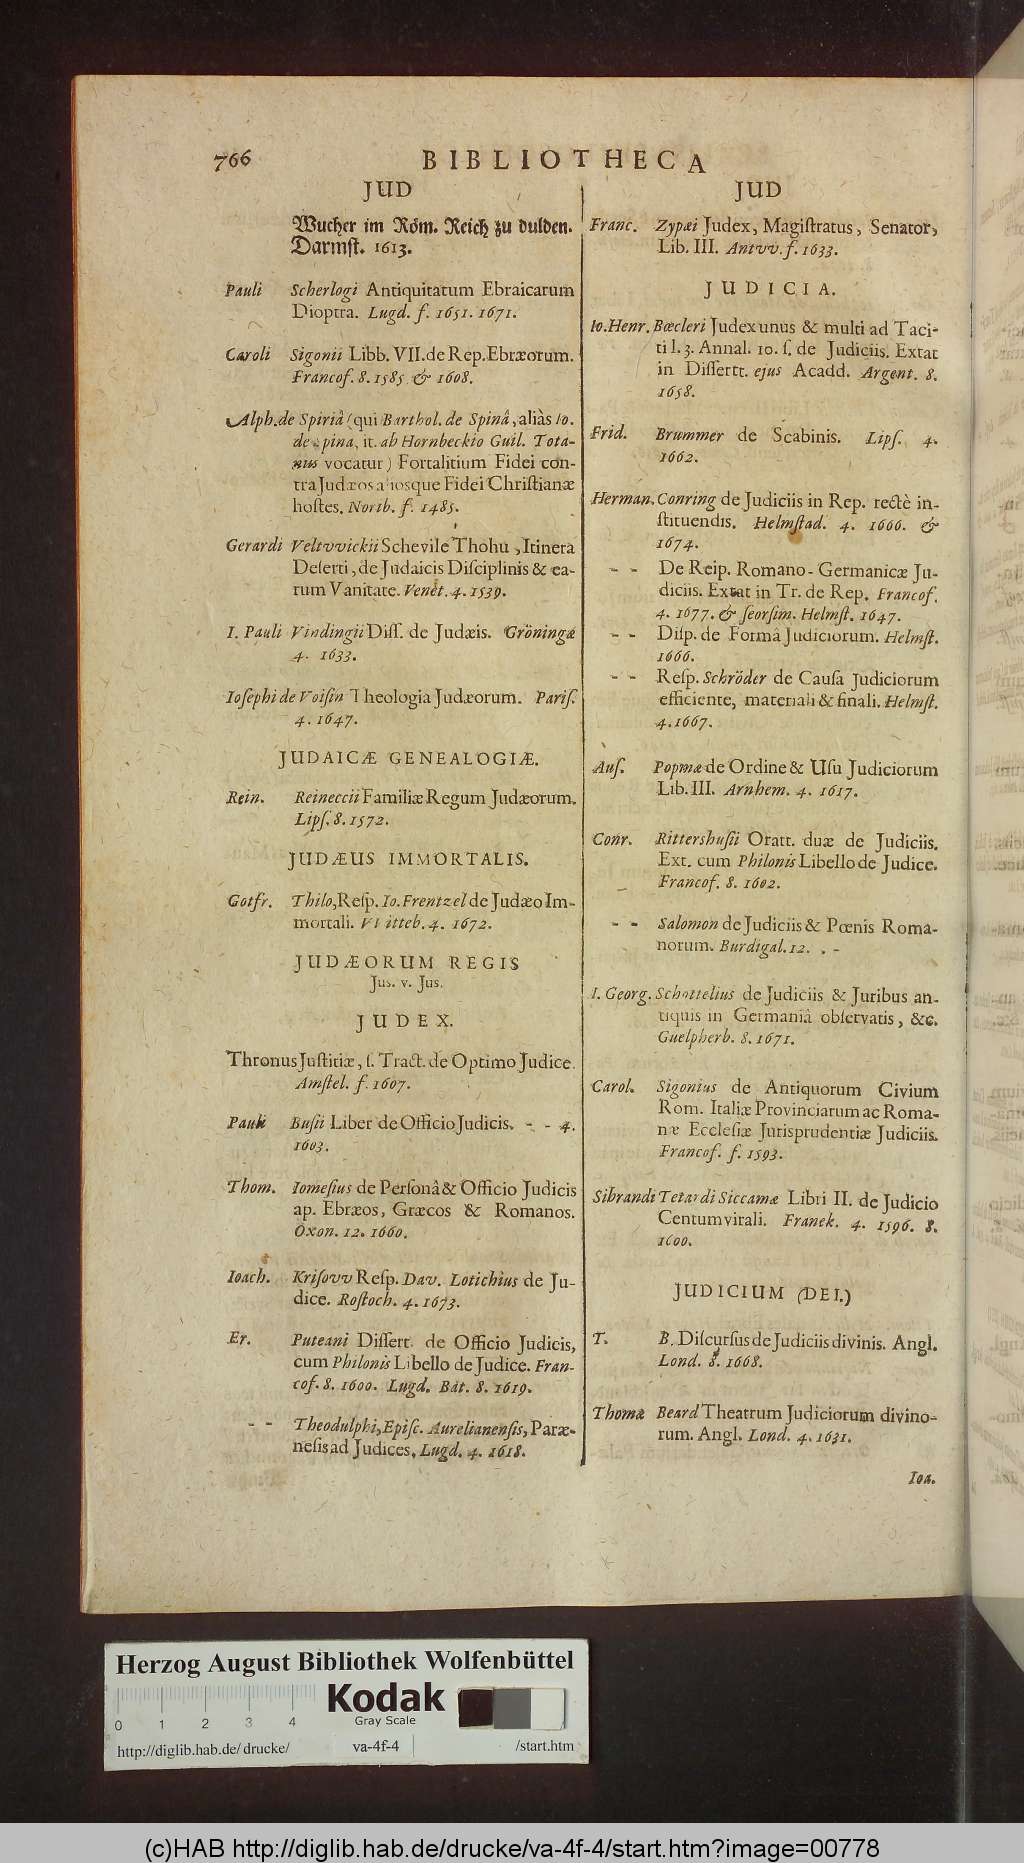 766 BIBLIOTHECA
JUD
Wucher im Röm. Reich zu dulden.
Darmſt. 1613.
Pauli Scherlogi Antiquitatum Ebraicarum
Dioptra. Lugd. f. 1651. 1671.
Caroli Sigonii Libb. VII. de Rep. Ebræorum.
Francof. 8. 1585. & 1608.
Alph. de Spiriâ (qui Barthol. de Spinâ, aliàs Io.
de Spina, it. ab Hornbeckio Guil. Tota-
nus vocatur) Fortalitium Fidei con-
tra Judæos aliosque Fidei Chriſtianæ
hoſtes. Norib. f. 1485.
Gerardi Veltvvickii Schevile Thohu, Itinera
Deſerti, de Judaicis Diſciplinis & ea-
rum Vanitate. Venet. 4. 1539.
I. Pauli Vindingii Diſſ. de Judæis. Gröningæ
4. 1633.
Ioſephi de Voiſin Theologia Judæorum. Pariſ.
4. 1647.
JUDAICÆ GENEALOGIÆ.
Rein. Reineccii Familiæ Regum Judæorum.
Lipſ. 8. 1572.
JUDÆUS IMMORTALIS.
Gotfr. Thilo, Reſp. Io. Frentzel de Judæo Im-
mortali. VVitteb. 4. 1672.
JUDÆORUM REGIS
Jus. v. Jus.
JUDEX.
Thronus Juſtitiæ, ſ. Tract. de Optimo Judice.
Amſtel. f. 1607.
Pauli Buſii Liber de Officio Judicis. - - 4.
1603.
Thom. Iomeſius de Perſonâ & Officio Judicis
ap. Ebræos, Græcos & Romanos.
Oxon. 12. 1660.
Ioach. Kriſovv Reſp. Dav. Lotichius de Ju-
dice. Roſtoch. 4. 1673.
Er. Puteani Diſſert. de Officio Judicis,
cum Philonis Libello de Judice. Fran-
cof. 8. 1600. Lugd. Bat. 8. 1619.
- - Theodulphi, Epiſc. Aurelianenſis, Paræ-
neſis ad Judices. Lugd. 4. 1618.
JUD
Franc. Zypæi Judex, Magiſtratus, Senator,
Lib. III. Antvv. f. 1633.
JUDICIA.
Io. Henr. Bœcleri Judex unus & multi ad Taci-
ti l. 3. Annal. 10. ſ. de Judiciis. Extat
in Diſſertt. ejus Acadd. Argent. 8.
1658.
Frid. Brummer de Scabinis. Lipſ. 4.
1662.
Herman. Conring de Judiciis in Rep. rectè in-
ſtituendis. Helmſtad. 4. 1666. &
1674.
- - De Reip. Romano-Germanicæ Ju-
diciis. Extat in Tr. de Rep. Francof.
4. 1677. & ſeorſim. Helmſt. 1647.
- - Diſp. de Formâ Judiciorum. Helmſt.
1666.
- - Reſp. Schröder de Cauſa Judiciorum
efficiente, materiali & finali. Helmſt.
4. 1667.
Auſ. Popmæ de Ordine & Uſu Judiciorum
Lib. III. Arnhem. 4. 1617.
Conr. Rittershuſii Oratt. duæ de Judiciis.
Ext. cum Philonis Libello de Judice.
Francof. 8. 1602.
- - Salomon de Judiciis & Pœnis Roma-
norum. Burdigal. 12. . -
I. Georg. Schottelius de Judiciis & Juribus an-
tiquis in Germaniâ obſervatis, &c.
Guelpherb. 8. 1671.
Carol. Sigonius de Antiquorum Civium
Rom. Italiæ Provinciarum ac Roma-
næ Eccleſiæ Jurisprudentiæ Judiciis.
Francof. f. 1593.
Sibrandi Tetardi Siccamæ Libri II. de Judicio
Centumvirali. Franek. 4. 1596. 8.
1600.
JUDICIUM (DEI.)
T. B. Diſcurſus de Judiciis divinis. Angl.
Lond. 8. 1668.
Thomæ Beard Theatrum Judiciorum divino-
rum. Angl. Lond. 4. 1631.
Ioa.
Herzog August Bibliothek Wolfenbüttel
Kodak
Gray Scale
0 1 2 3 4
http://diglib.hab.de/drucke/ va-4f-4 /start.htm
(c)HAB http://diglib.hab.de/drucke/va-4f-4/start.htm?image=00778